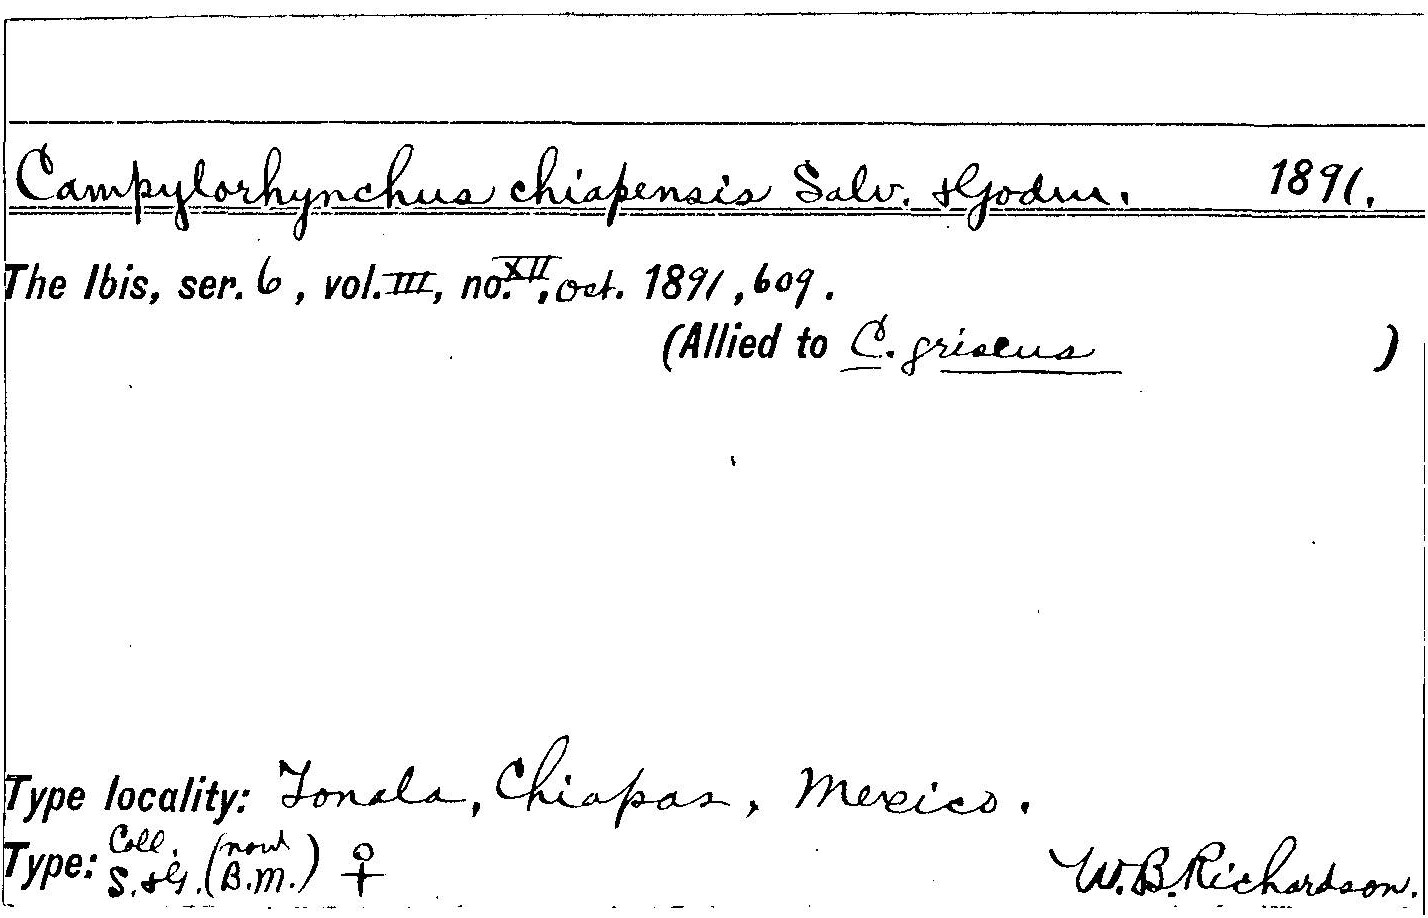 Campylorhynchus chiapensis Salv. & Godm. 1891.
The Ibis, ser. 6, vol. III, no. XII, oct. 1891, 609.
(Allied to C. griseus )
Type locality: Tonala, Chiapas, Mexico.
Type: Coll. S. & G. (now B.M.) ♀ W.B. Richardson.